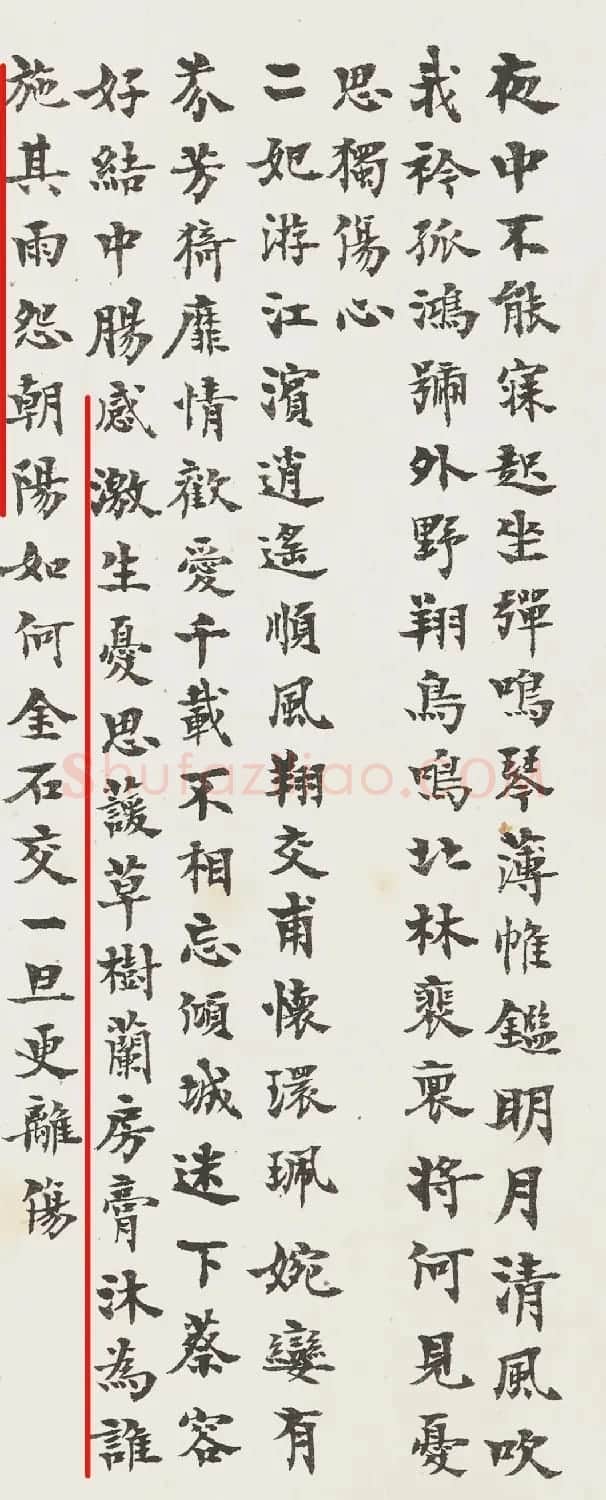 夜中不能寐起坐彈鳴琴薄帷鑑明月清風吹
我衿孤鴻號外野翔鳥鳴北林裵將何見憂
思獨傷心
二妃游江濱逍遙順風翔交甫懷環珮婉孌有
芬芳猗靡情歡愛千載不相忘傾城迷下蔡容
好結中腸感激生憂思蘐草樹蘭房膏沐為誰
施其雨怨朝陽如何金石交一旦更離傷
Shufaziliao.COM